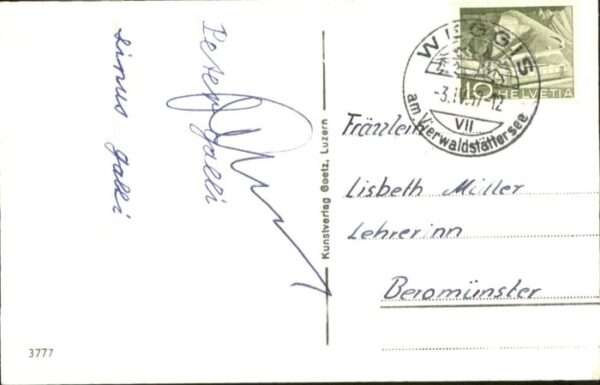 Peter Galli
Sinus Galli
3777
Kunstverlag Goetz, Luzern
WIGGIS
-3.IV.57-12
VII
am Vierwaldstättersee
10 HELVETIA
Fräulein
Lisbeth Müller
Lehrerinn
Beromünster